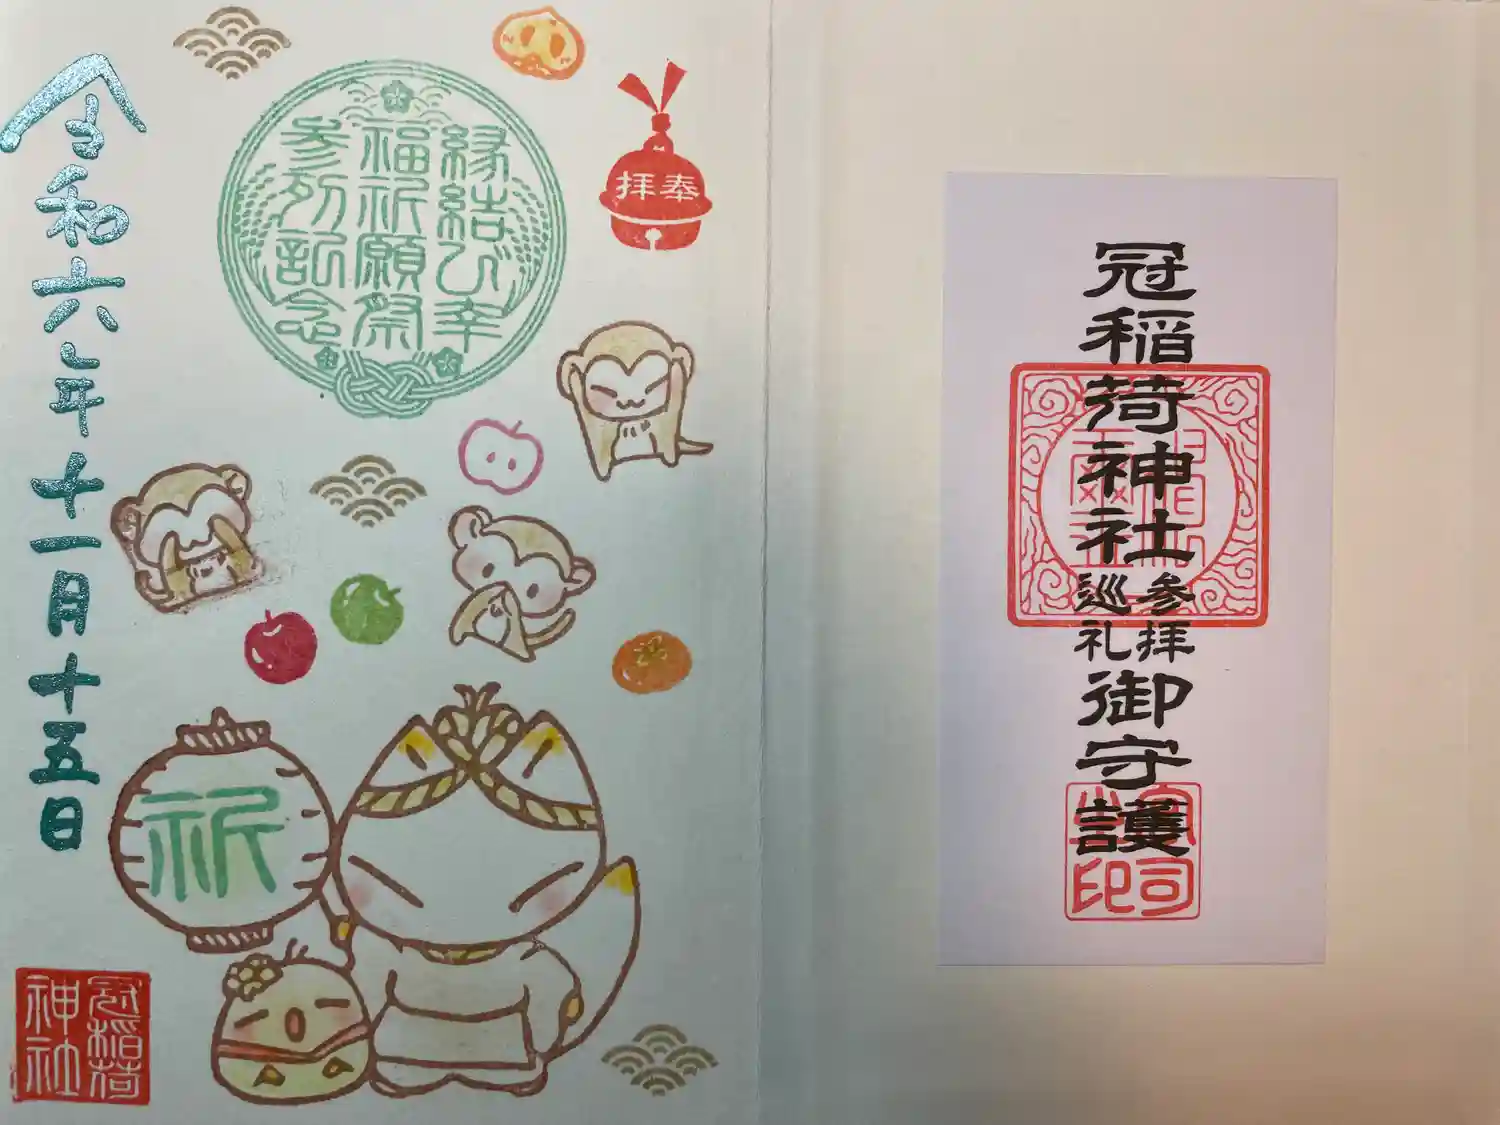 奉拝
縁結び幸
福祈願祭
参列記念
令和六年十一月十五日
祈
冠稲荷
神社
冠稲荷神社
参拝
巡礼
御守護
宮司
之印